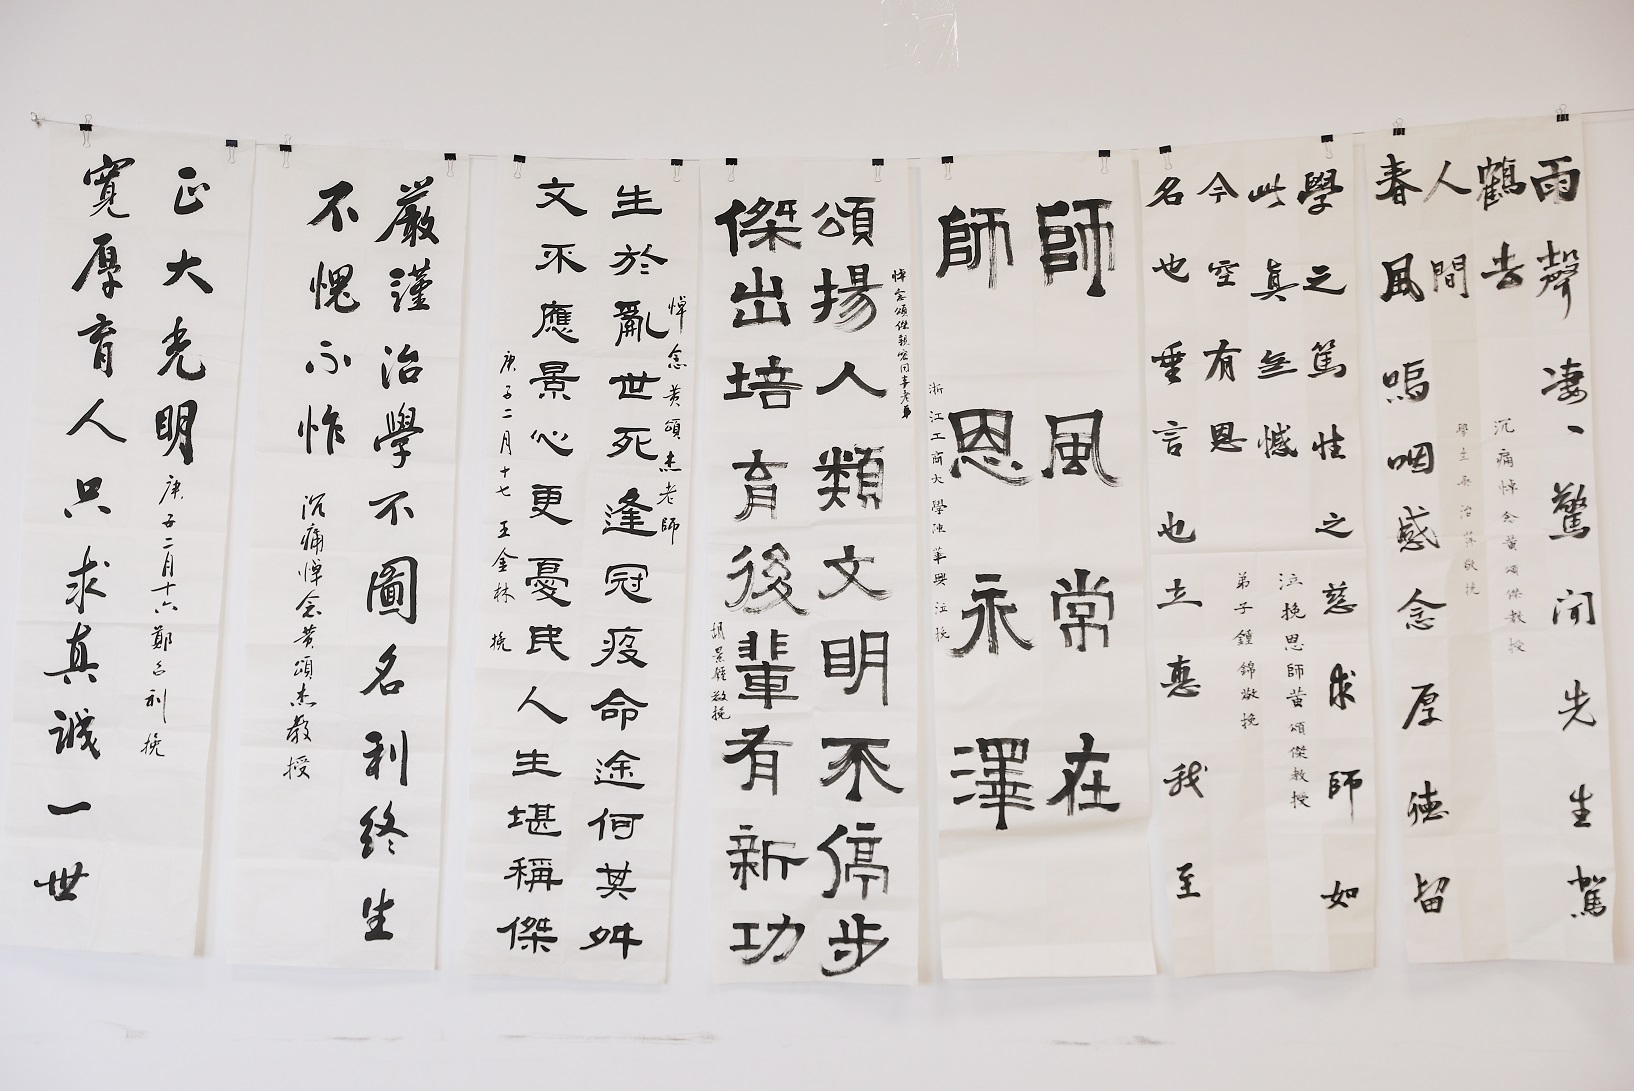 雨聲凄、驚聞先生駕
鶴去
沉痛悼念黄頌傑教授
人間
春風嗚咽感念厚德留
學之篤性之慈求師如
此真無憾
泣挽恩師黄頌傑教授
今空有恩
弟子鍾錦敬挽
名也垂言也立惠我至
師風常在
師恩永澤
浙江工商大學陳華興泣挽
頌揚人類文明不停步
傑出培育後輩有新功
胡景鍾敬挽
悼念黄頌杰老師
生於亂世死逢冠疫命途何其舛
文采應景心更憂民人生堪稱傑
庚子二月十七 王金林 挽
嚴謹治學不圖名利終生
不愧不怍
沉痛悼念黄頌杰教授
正大光明
庚子二月十六鄭召利挽
寬厚育人只求真誠一世